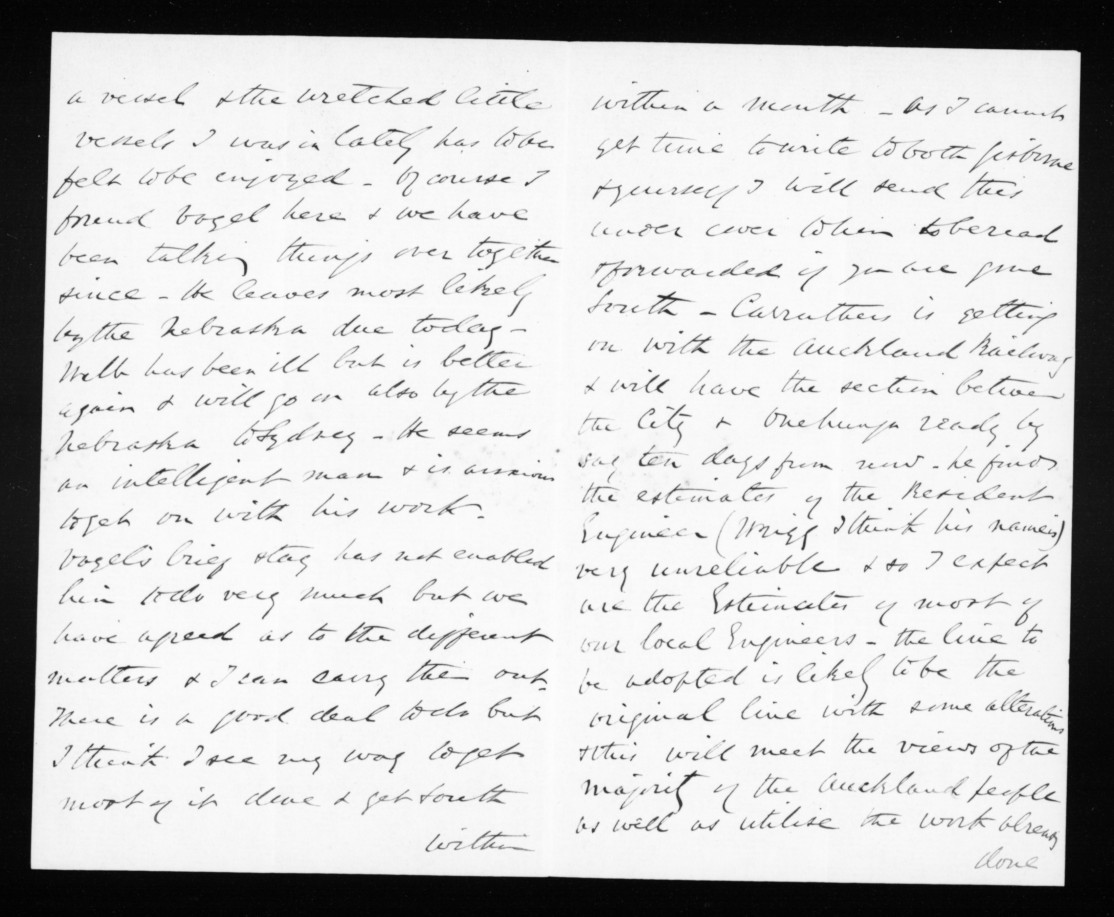 a vessel & the wretched little
vessels I was in lately has to be
felt to be enjoyed - Of course I
found Vogel here & we have
been talking things over together
since - He leaves most likely
by the Nebraska due today -
Webb has been ill but is better
again & will go on also by the
Nebraska to Sydney - He seems
an intelligent man & is anxious
to get on with his work -
Vogel's brief stay has not enabled
him to do very much but we
have agreed as to the different
matters & I can carry them out.
There is a good deal to do but
I think I see my way to get
most of it done & get South
within
within a month - As I cannot
get time to write to both Gisborne
& yourself I will send this
under cover to him to be read
& forwarded if you are gone
South - Carruthers is getting
on with the Auckland Railway
& will have the section between
the City & Onehunga ready by
say ten days from now - he finds
the estimates of the Resident
Engineer (Wrigg I think his name is)
very unreliable & so I expect
are the Estimates of most of
our local Engineers - the line to
be adopted is likely to be the
original line with some alterations
& this will meet the views of the
majority of the Auckland people
as well as utilise the work already
done